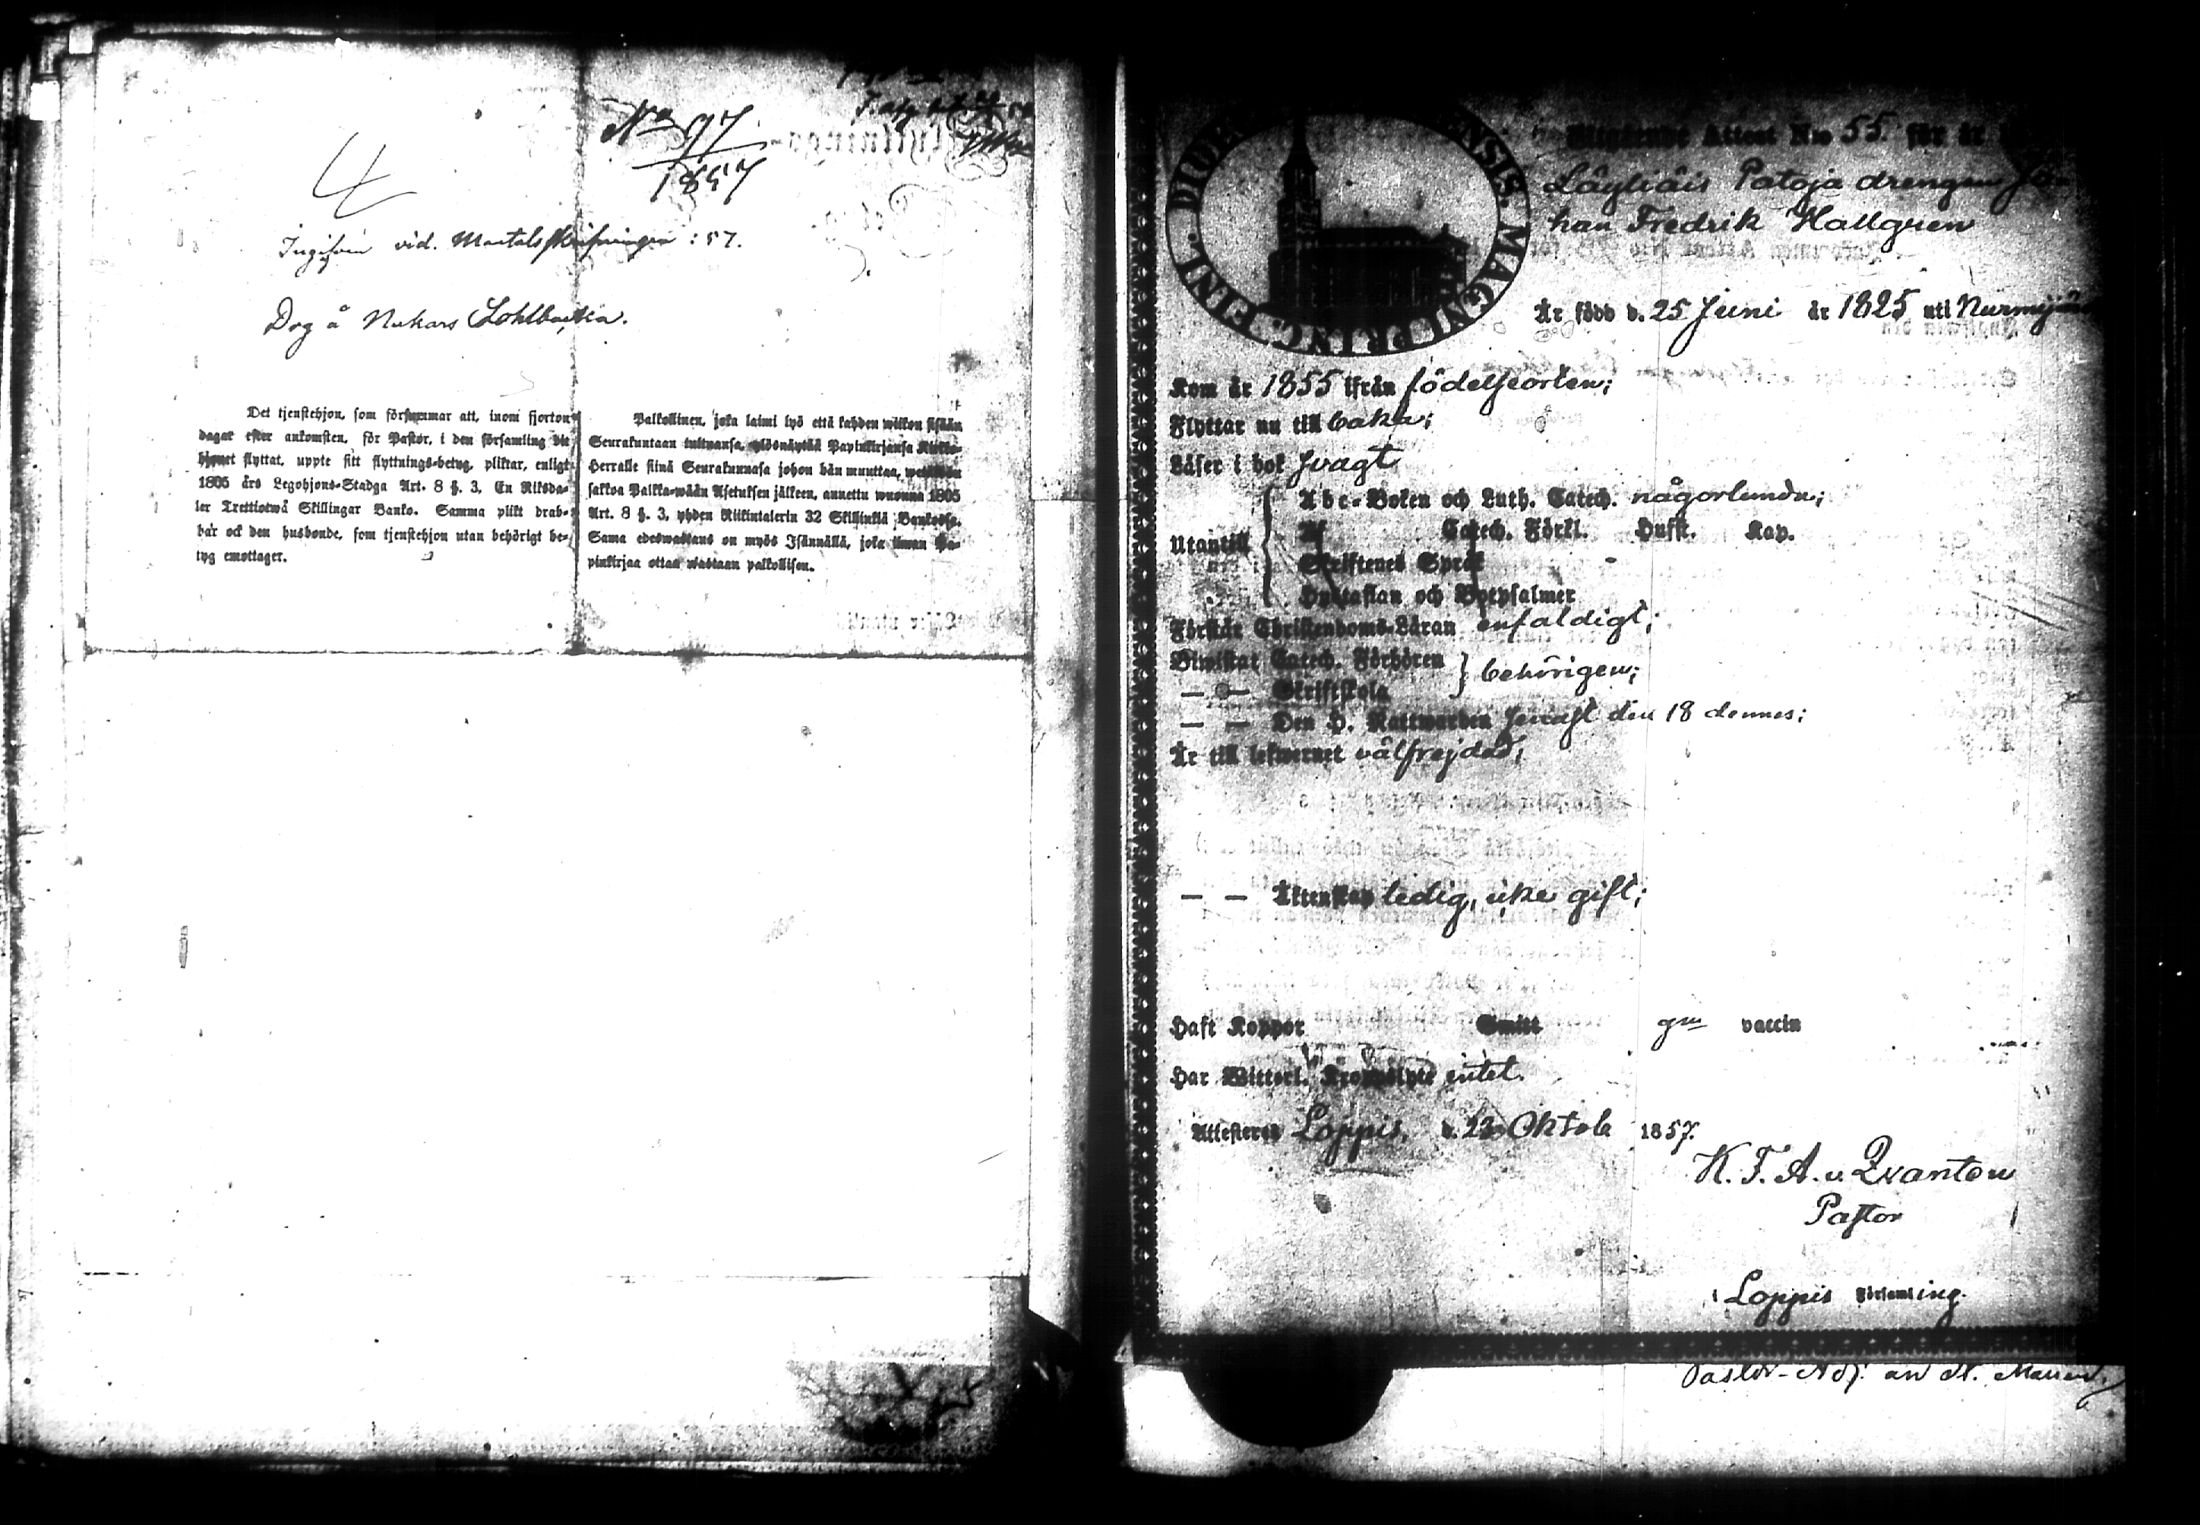 No 97
1857
Ingifven vid Mantalsskrifningen :57.
Dog å Nukars Lohlbacka.
Det tjenstehjon, som försummar att, inom fjorton
dagar efter ankomsten, för Pastor, i den församling dit
hjonet flyttat, uppte sitt flyttnings-betyg, pliktar, enligt
1805 års Legohjons-Stadga Art. 8 §. 3, En Riksda-
ler Trettiotwå Skillingar Banko. Samma plikt drab-
bar ock den husbonde, som tjenstehjon utan behörigt be-
tyg emottager.
Palkollinen, joka laimi lyö että kahden wiikon sisään
Seurakuntaan tultuansa, ylösnäyttää Papinkirjansa Kirkko-
Herralle siinä Seurakunnasa johon hän muuttaa, wetäköön
sakkoa Palkka-wään Asetuksen jälkeen, annettu wuonna 1805
Art. 8 §. 3, yhden Riikintalerin 32 Skillinkiä Bankossa.
Sama edeswastaus on myös Isännällä, joka ilman Pa-
pinkirjaa ottaa wastaan palkollisen.
FINL. DIOE ENSIS. MAGNI PRINC.
Utgående Attest N:o 55. för år
Läyliäis Patoja drengen Jo-
han Fredrik Hallgren
Är född d. 25 Juni år 1825 uti Nurmijärvi
Kom år 1855 ifrån födelseorten;
Flyttar nu till baka;
Läser i bok svagt
Utantill
Abc-Boken och Luth. Catech. någorlunda;
Af Catech. Förkl. Hufst. Kap.
Skriftenes Språk
Hustaflan och Botpsalmer
Förstår Christendoms-Läran enfaldigt;
Biwistat Catech. Förhören
— — Skriftskola
behörigen;
— — Den H. Nattwarden senast den 18 dennes;
Är till lefwernet välfrejdad;
— — Äktenskap ledig, icke gift;
Haft Koppor Smitt gm vaccin
Har Witterl. Kroppslyte intet.
Attesteres Loppis, d. 23 Oktob 1857.
K. F. A. v. Qvanten
Pastor
i Loppis Församling.
Pastor-Adj. an St.